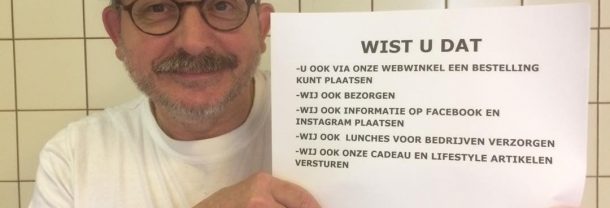 WIST U DAT
-U OOK VIA ONZE WEBWINKEL EEN BESTELLING
KUNT PLAATSEN
-WIJ OOK BEZORGEN
-WIJ OOK INFORMATIE OP FACEBOOK EN
INSTAGRAM PLAATSEN
-WIJ OOK LUNCHES VOOR BEDRIJVEN VERZORGEN
-WIJ OOK ONZE CADEAU EN LIFESTYLE ARTIKELEN
VERSTUREN